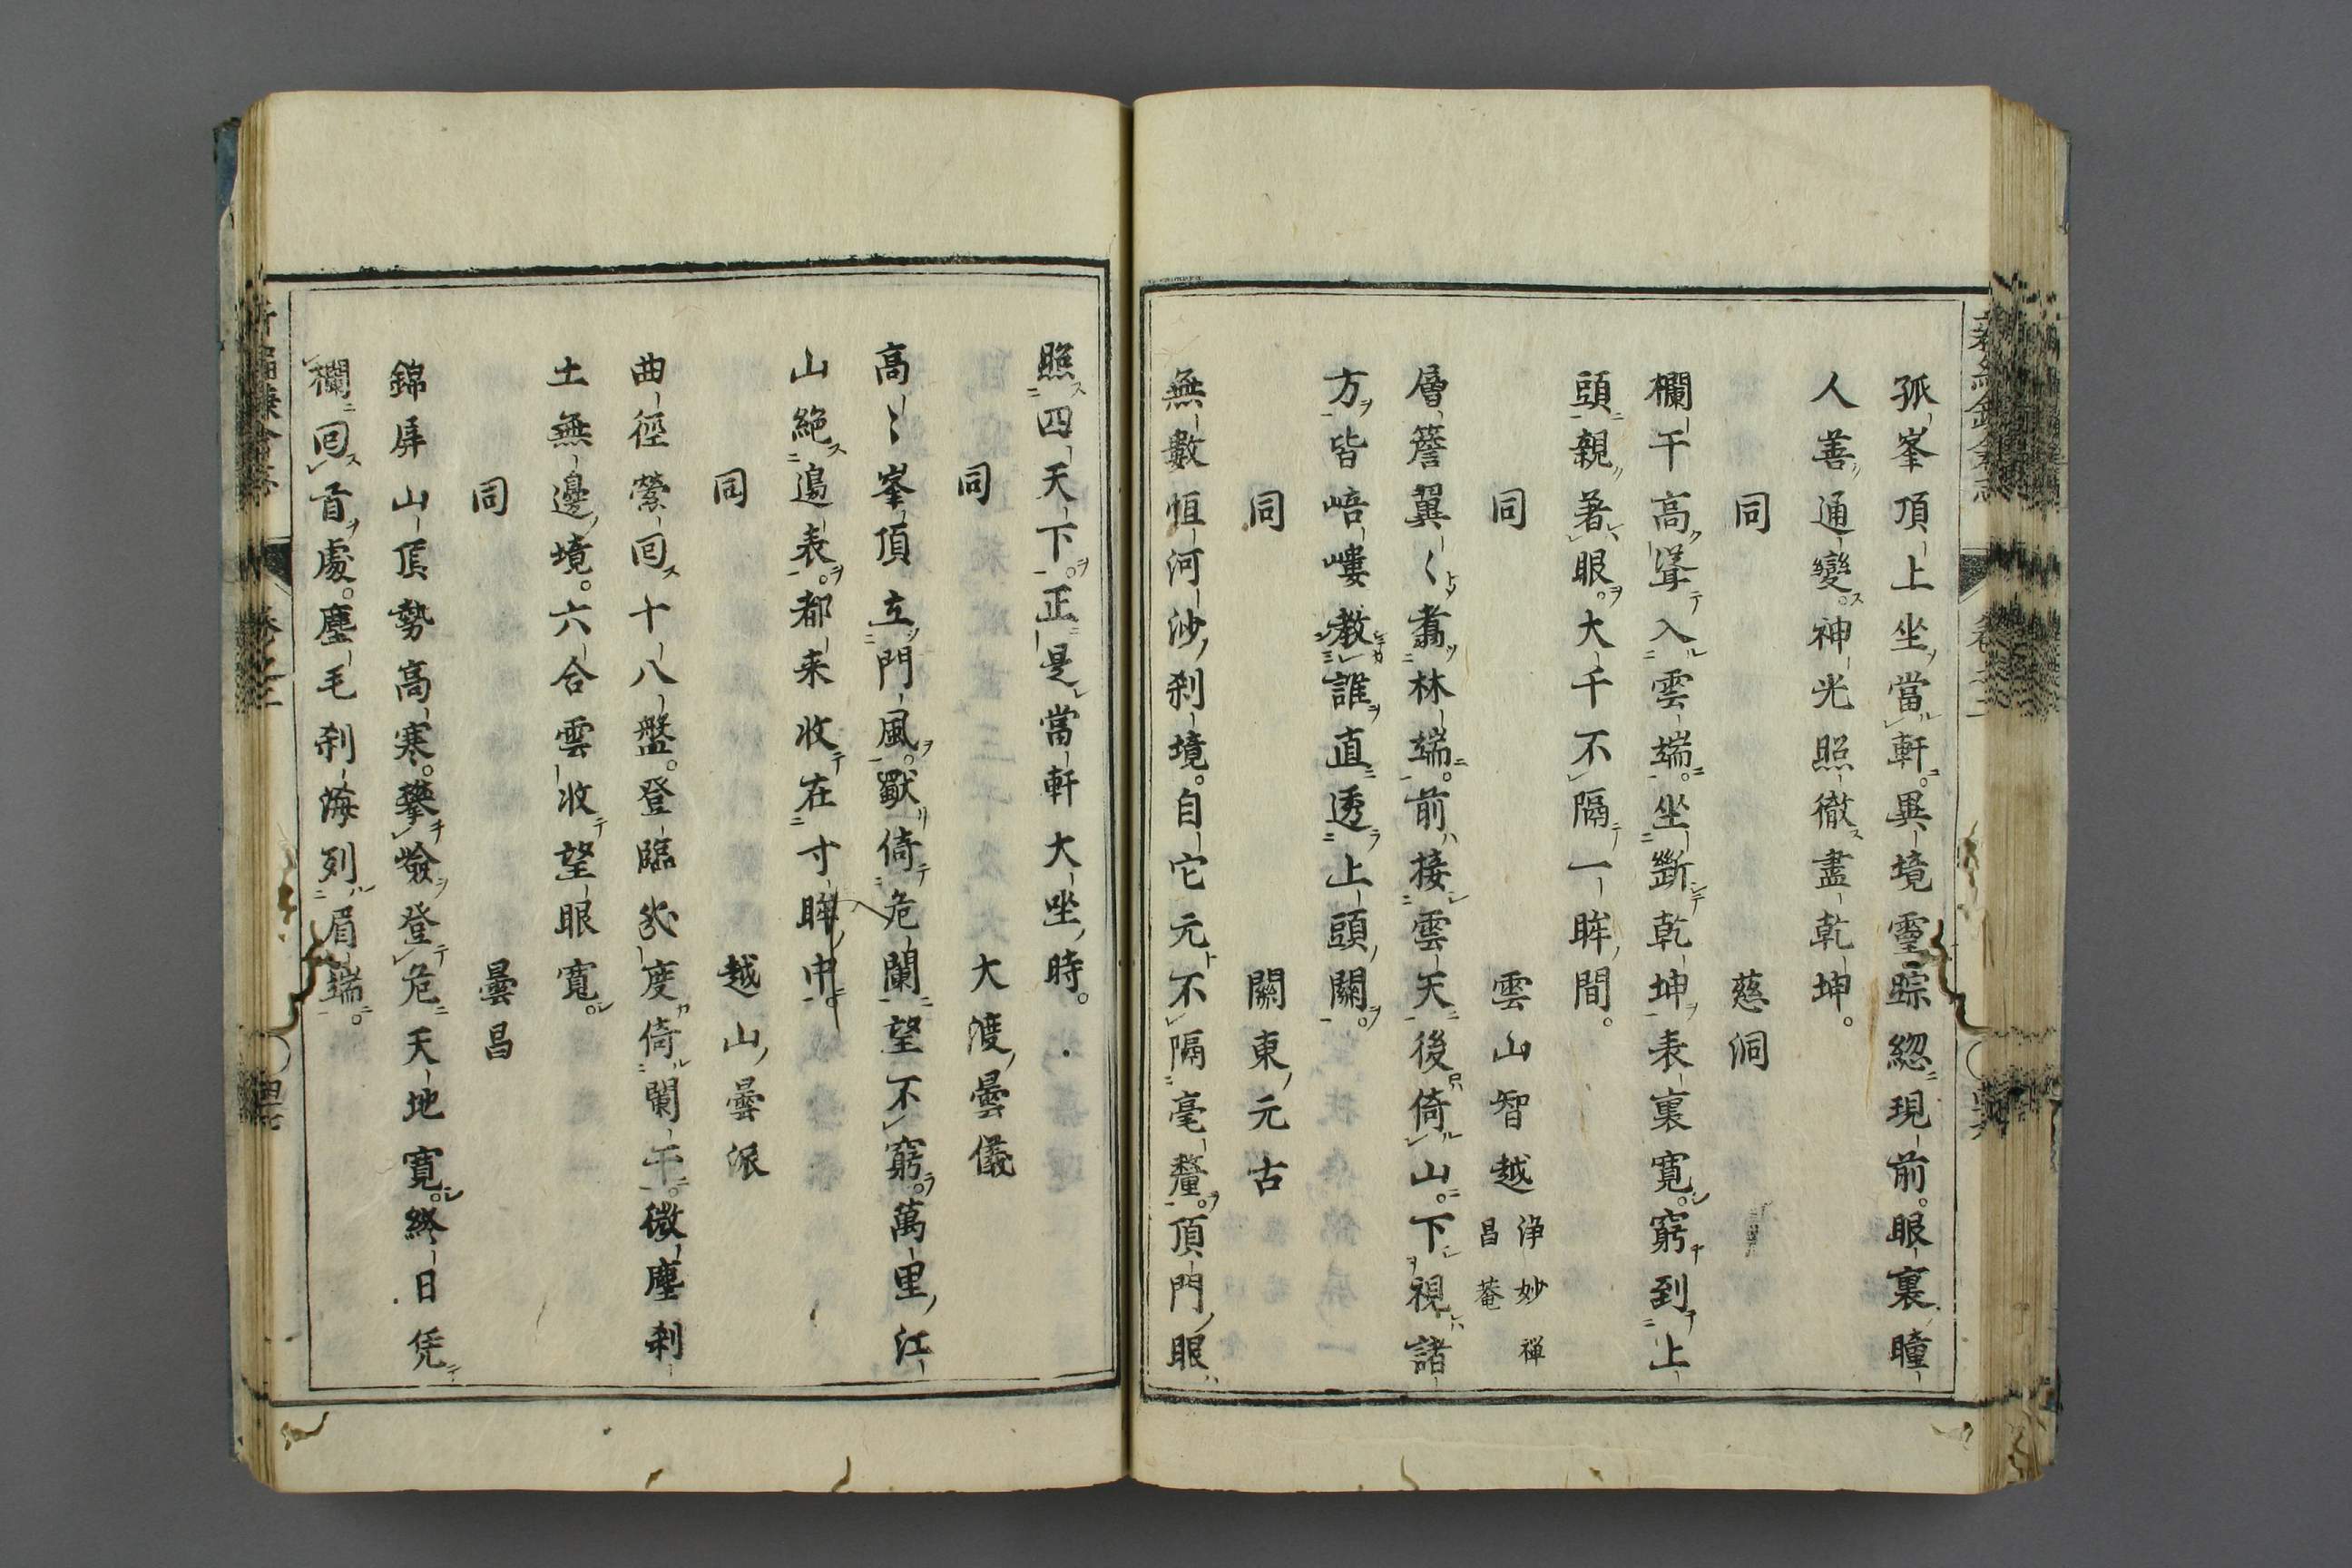 孤峯頂上坐當軒。異境靈踪總現前。眼裏瞳
人善通變。神光照徹盡乾坤。
同　慈洞
欄干高聳入雲端。坐斷乾坤表裏寬。窮到上
頭親著眼。大千不隔一眸間。
同　雲山智越 浄妙禅 昌菴
層簷翼〱翥林端。前接雲天後倚山。下視諸
方皆㟝嶁教誰直透上頭關。
同　關東元古
無數恒河沙刹境。自它元不隔毫釐。頂門眼
照四天下。正是當軒大坐時。
同　大渡曇儀
高〻峯頂立門風。獸倚危闌望不窮。萬里江
山絶邉表。都来收在寸眸中。
同　越山曇派
曲徑縈回十八盤。登臨幾度倚闌干。微塵刹
土無邊境。六合雲收望眼寬。
同　曇昌
錦屏山頂勢高寒。攀嶮登危天地寬。終日凭
欄回首處。塵毛刹海列眉端。